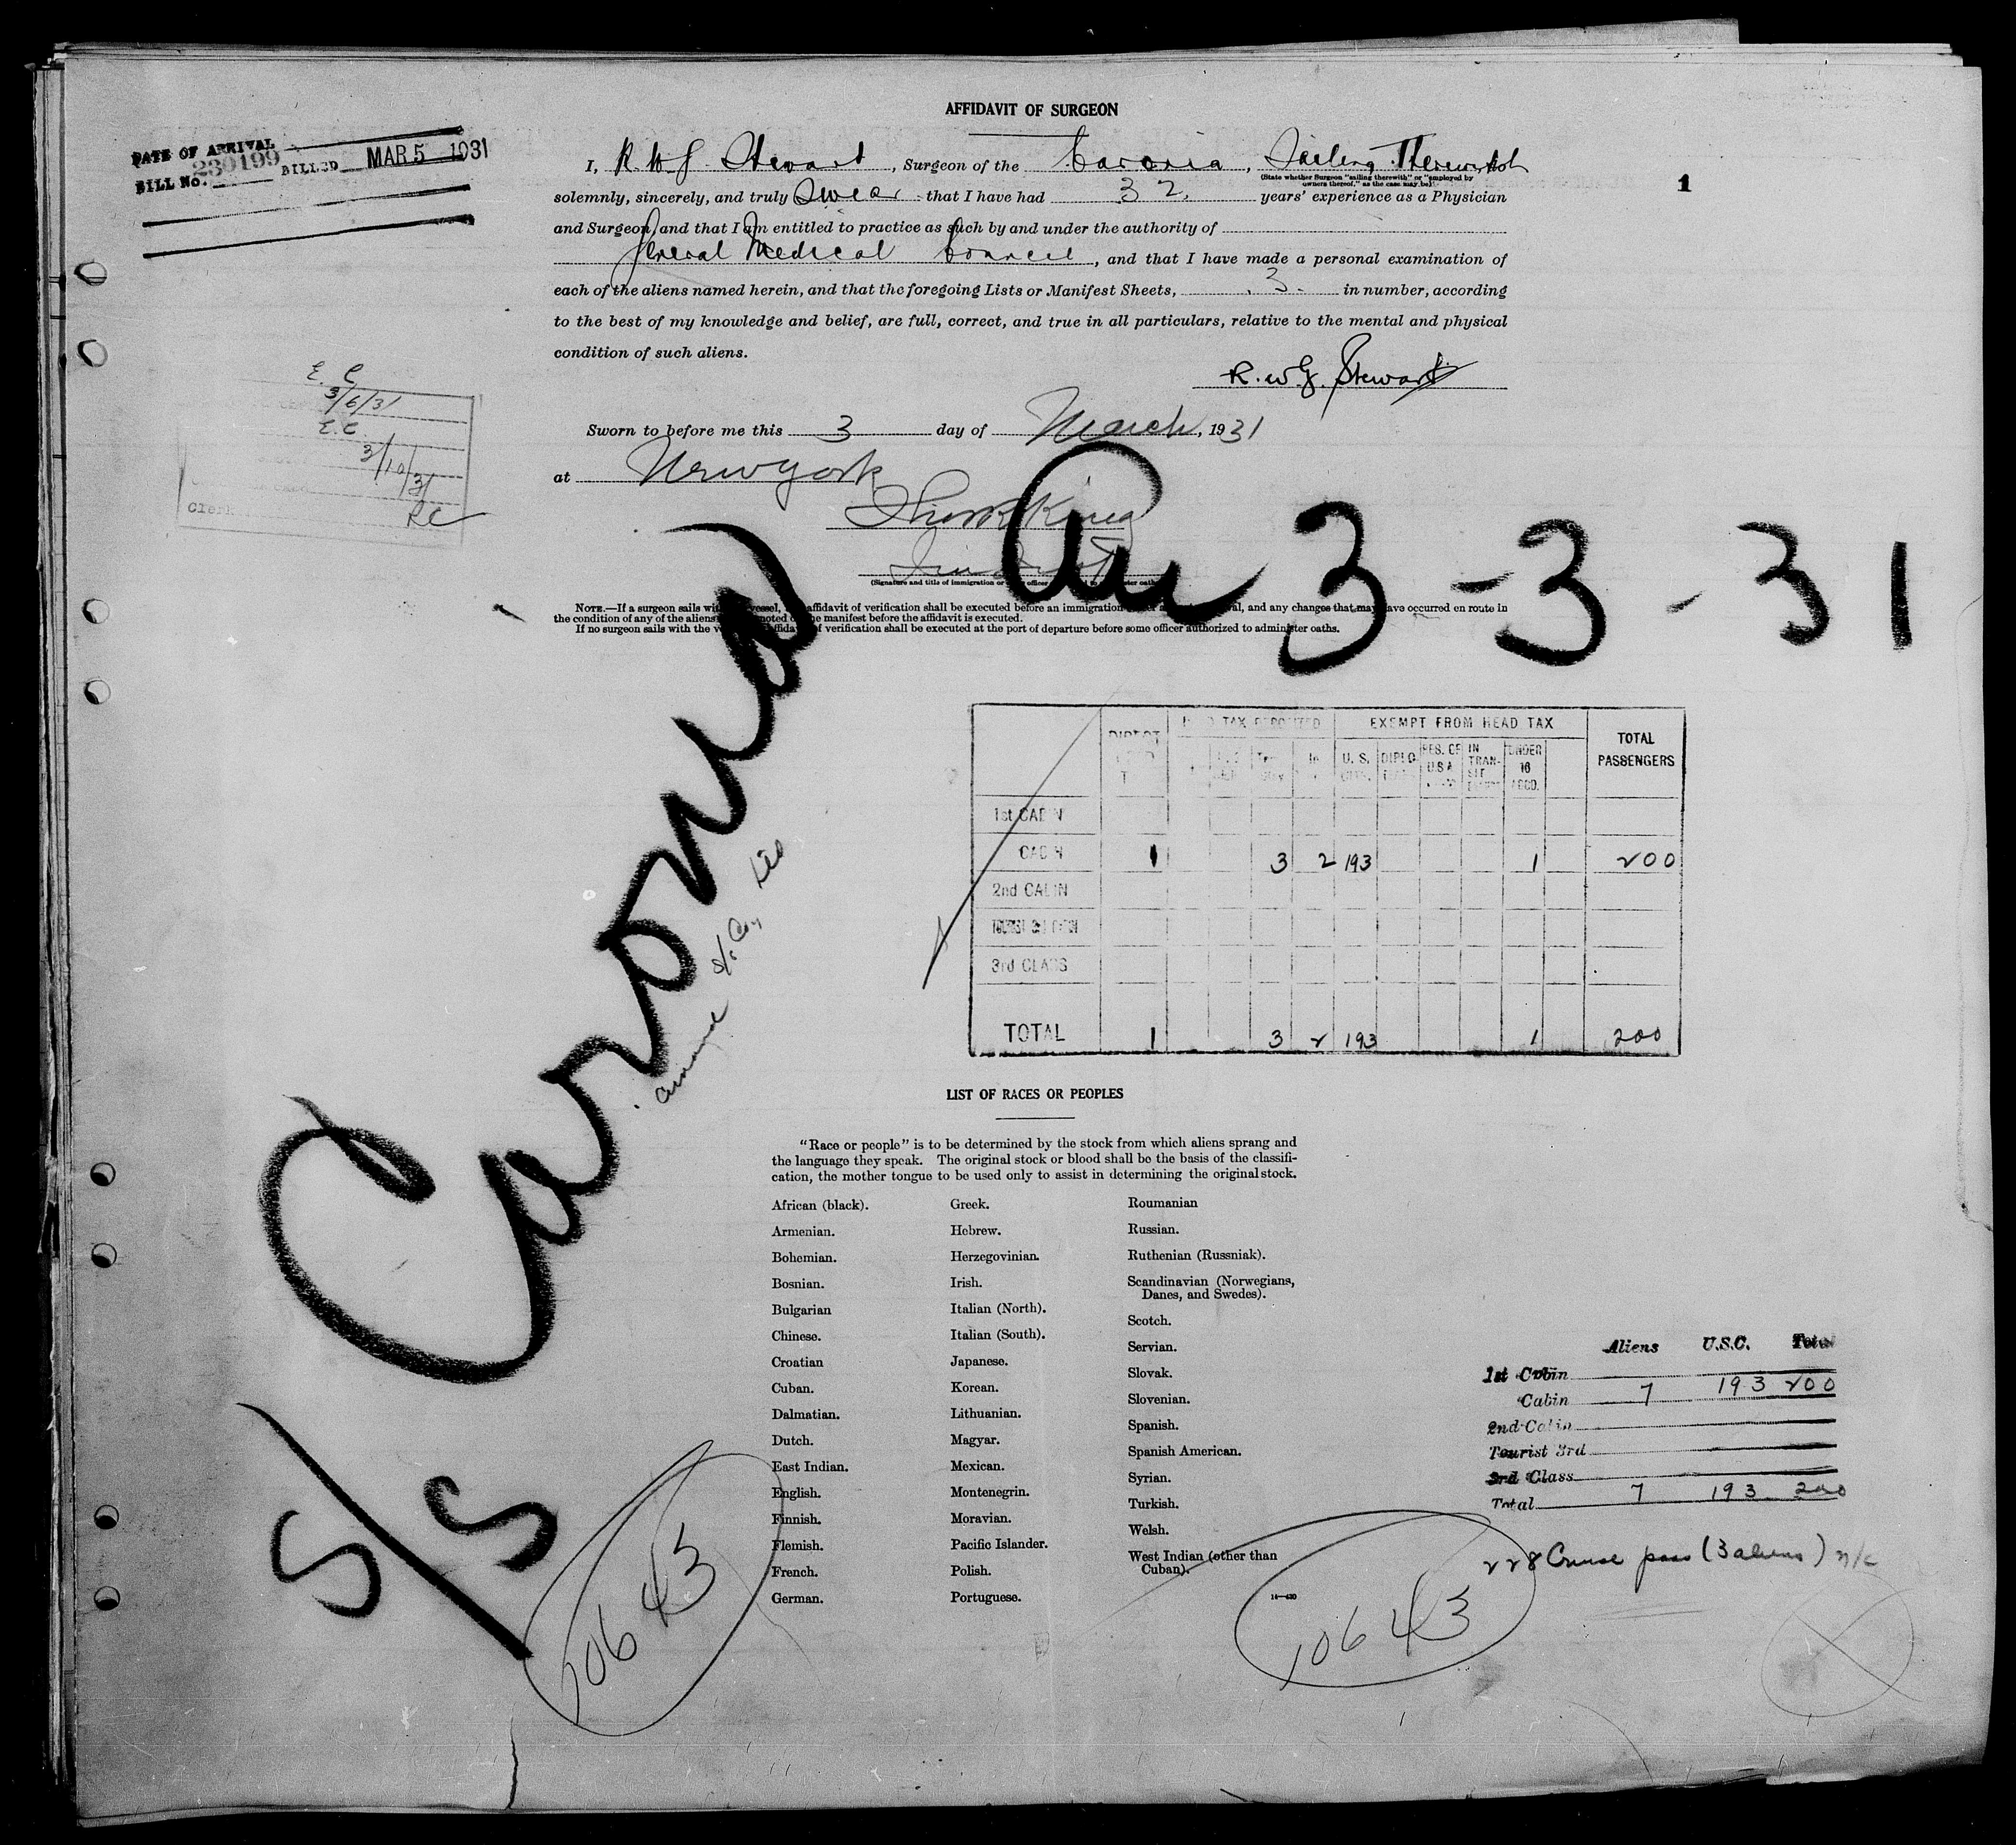 AFFIDAVIT OF SURGEON
DATE OF ARRIVAL
BILL No. 230199 BILLED MAR 5 1931
1
I, R. W. G. Stewart, Surgeon of the Caronia, Sailing Therewith
(State whether Surgeon "sailing therewith" or "employed by
owners thereof," as the case may be)
solemnly, sincerely, and truly Swear that I have had 32. years' experience as a Physician
and Surgeon, and that I am entitled to practice as such by and under the authority of
General Medical Council, and that I have made a personal examination of
each of the aliens named herein, and that the foregoing Lists or Manifest Sheets, 3. in number, according
to the best of my knowledge and belief, are full, correct, and true in all particulars, relative to the mental and physical
condition of such aliens.
R. W. G. Stewart
E. C
3/6/31
E. C
3/10/31
RC
Clerk
Sworn to before me this 3 day of March, 1931
at New York
King
(Signature and title of immigration or officer to oath)
Arr 3-3-31
NOTE.—If a surgeon sails with vessel, affidavit of verification shall be executed before an immigration and any changes that may have occurred en route in
the condition of any of the aliens noted the manifest before the affidavit is executed.
If no surgeon sails with the affidavit of verification shall be executed at the port of departure before some officer authorized to administer oaths.
S/S Caronia
HEAD TAX DEPOSITED EXEMPT FROM HEAD TAX TOTAL PASSENGERS
DIRECT U. S. DIPLO RES. OF U.S.A IN TRAN- SIT UNDER 16 ACCD.
1st CABIN
CABIN 1 3 2 193 1 200
2nd CABIN
3rd CLASS
TOTAL 1 3 2 193 1 200
LIST OF RACES OR PEOPLES
"Race or people" is to be determined by the stock from which aliens sprang and
the language they speak. The original stock or blood shall be the basis of the classifi-
cation, the mother tongue to be used only to assist in determining the original stock.
African (black).
Armenian.
Bohemian.
Bosnian.
Bulgarian
Chinese.
Croatian
Cuban.
Dalmatian.
Dutch.
East Indian.
English.
Finnish.
Flemish.
French.
German.
Greek.
Hebrew.
Herzegovinian.
Irish.
Italian (North).
Italian (South).
Japanese.
Korean.
Lithuanian.
Magyar.
Mexican.
Montenegrin.
Moravian.
Pacific Islander.
Polish.
Portuguese.
Roumanian
Russian.
Ruthenian (Russniak).
Scandinavian (Norwegians,
Danes, and Swedes).
Scotch.
Servian.
Slovak.
Slovenian.
Spanish.
Spanish American.
Syrian.
Turkish.
Welsh.
West Indian (other than
Cuban).
Aliens U.S.C. Total
1st Cabin
Cabin 7 193 200
2nd Cabin
Tourist 3rd
3rd Class
Total 7 193 200
228 Cruise pass (3 aliens) n/c
10643
10643